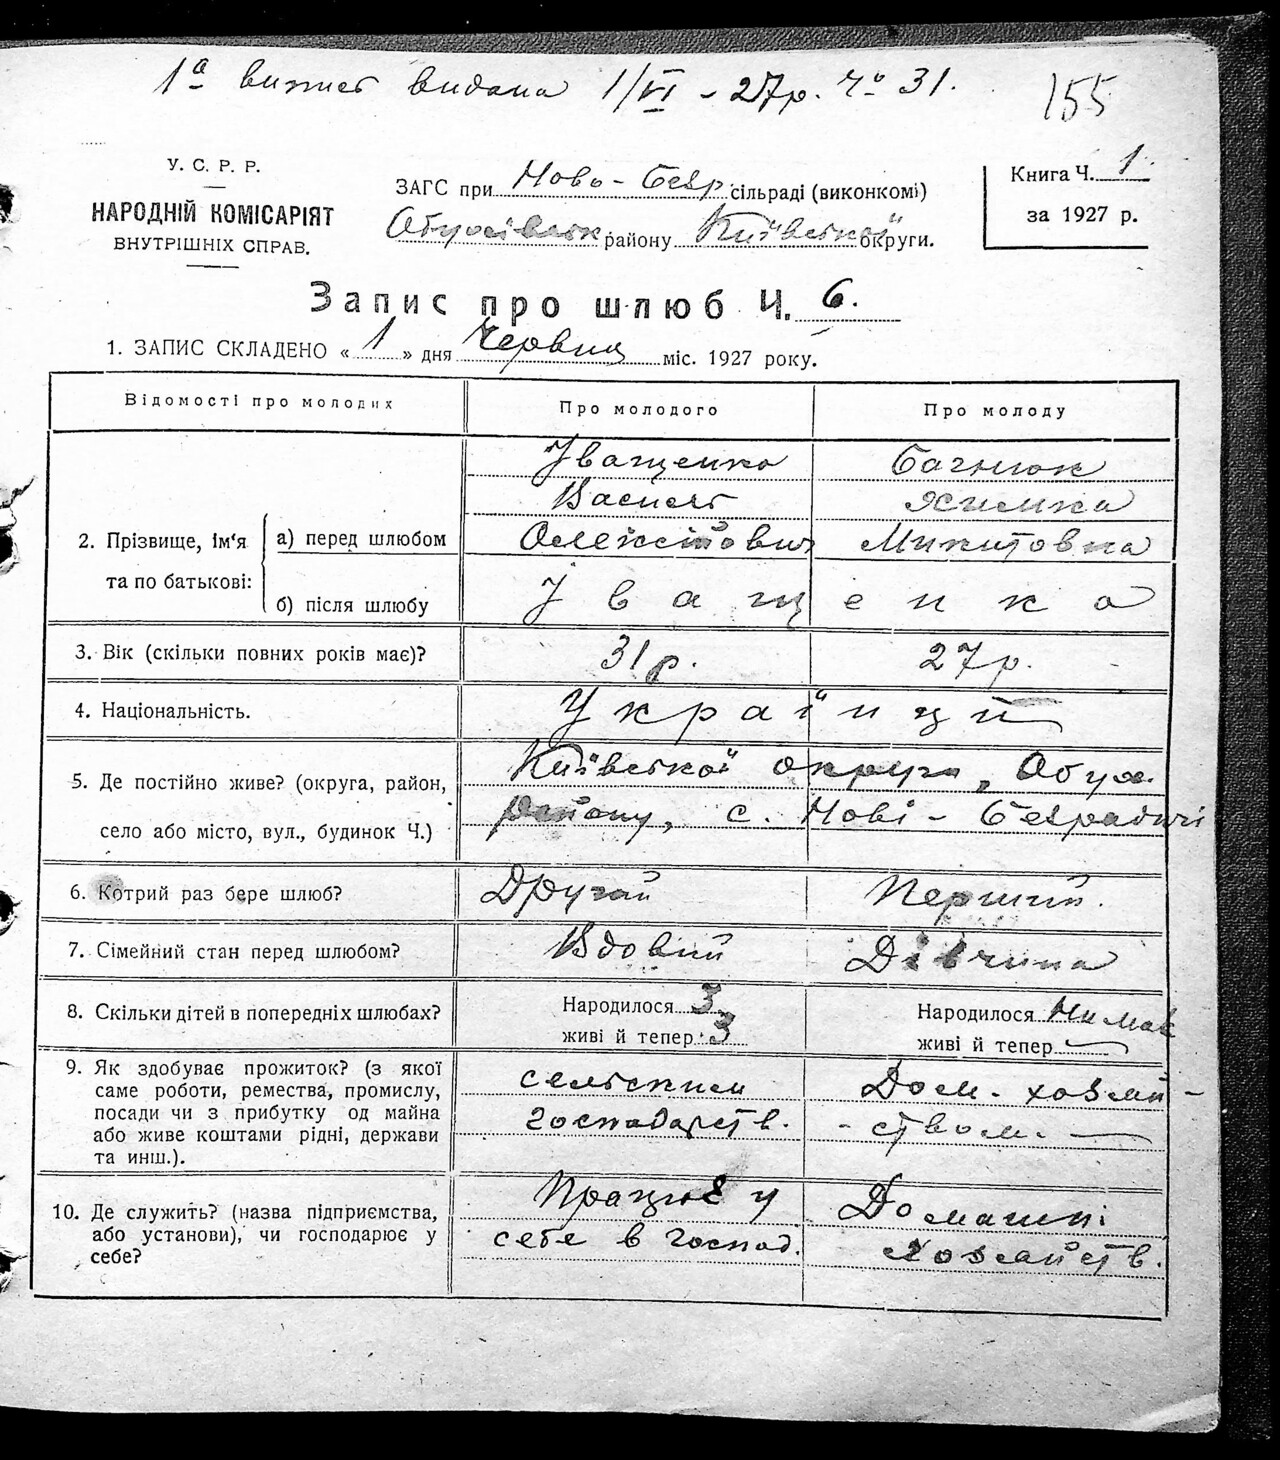 1ª виписъ видана 1/VI - 27р. Ч° 31.
155
У. С. Р. Р.
НАРОДНІЙ КОМІСАРІЯТ
ВНУТРІШНІХ СПРАВ.
ЗАГС при Ново-Безр сільраді (виконкомі)
Обухівськ району Київської округи.
Книга Ч. 1
за 1927 р.
Запис про шлюб Ч. 6.
1. ЗАПИС СКЛАДЕНО « 1 » дня Червця міс. 1927 року.
Відомості про молодих
Про молодого
Про молоду
2. Прізвище, ім'я та по батькові:
а) перед шлюбом
Іващенко
Василь
Олексійович
Багнюк
Яхимка
Микитовна
б) після шлюбу
Іващенко
3. Вік (скільки повних років має)?
31р.
27р.
4. Національність.
Українці
5. Де постійно живе? (округа, район,
село або місто, вул., будинок Ч.)
Київської округи, Обух.
району, с. Нові-Безрадичі
6. Котрий раз бере шлюб?
Другий
Перший.
7. Сімейний стан перед шлюбом?
Вдовий
Дівчина
8. Скільки дітей в попередніх шлюбах?
Народилося 3
живі й тепер 3
Народилося Нимає
живі й тепер —
9. Як здобуває прожиток? (з якої
саме роботи, ремества, промислу,
посади чи з прибутку од майна
або живе коштами рідні, держави
та инш.).
сельским
господарств.
Дом. хозяй-
-ством.
10. Де служить? (назва підприємства,
або установи), чи господарює у
себе?
Працює у
себе в господ.
Домашні
хозяйств.